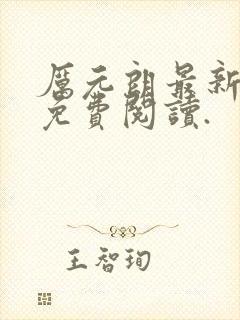 厲元朗最新
免費閱讀.
王智珣